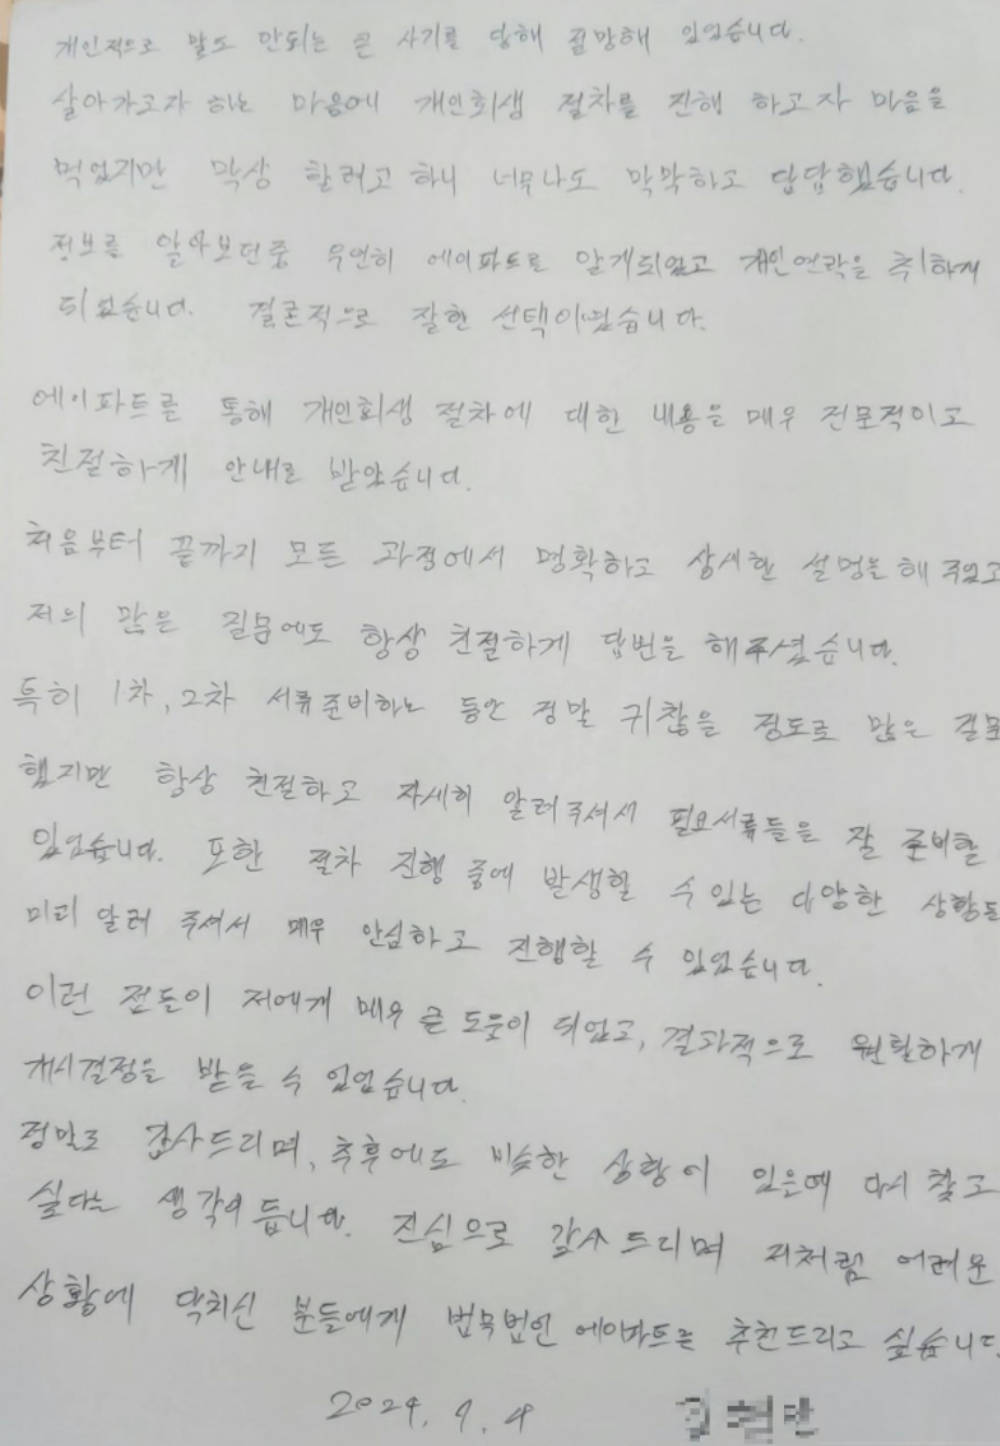 개인적으로 말도 안되는 큰 사기를 당해 절망해 있었습니다.
살아가고자 하는 마음에 개인회생 절차를 진행 하고자 마음을
먹었지만 막상 할려고 하니 너무나도 막막하고 답답했습니다.
정보를 알아보던중 우연히 에이파트를 알게되었고 개인연락을 취하게
되었습니다. 결론적으로 잘한 선택이였습니다.
에이파트를 통해 개인회생 절차에 대한 내용을 매우 전문적이고
친절하게 안내를 받았습니다.
처음부터 끝까지 모든 과정에서 명확하고 상세한 설명을 해 주었고
저의 많은 질문에도 항상 친절하게 답변을 해주셨습니다.
특히 1차, 2차 서류준비하는 동안 정말 귀찮을 정도로 많은 질문
했지만 항상 친절하고 자세히 알려주셔서 필요서류들을 잘 준비할
있었습니다. 또한 절차 진행 중에 발생할 수 있는 다양한 상황들
미리 알려 주셔서 매우 안심하고 진행할 수 있었습니다.
이런 점들이 저에게 매우 큰 도움이 되었고, 결과적으로 원활하게
개시결정을 받을 수 있었습니다.
정말로 감사드리며, 추후에도 비슷한 상황이 있을때 다시 찾고
싶다는 생각이 듭니다. 진심으로 감사드리며 저처럼 어려운
상황에 닥치신 분들에게 법무법인 에이파트를 추천드리고 싶습니다
2024. 9. 4